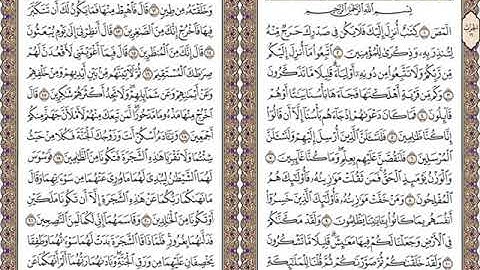 بِسْمِ ٱللَّهِ ٱلرَّحْمَٰنِ ٱلرَّحِيمِ
الٓمٓصٓ ١ كِتَٰبٌ أُنزِلَ إِلَيْكَ فَلَا يَكُن فِى صَدْرِكَ حَرَجٌ مِّنْهُ
لِتُنذِرَ بِهِۦ وَذِكْرَىٰ لِلْمُؤْمِنِينَ ٢ ٱتَّبِعُوا۟ مَآ أُنزِلَ إِلَيْكُم
مِّن رَّبِّكُمْ وَلَا تَتَّبِعُوا۟ مِن دُونِهِۦٓ أَوْلِيَآءَ قَلِيلًا مَّا تَذَكَّرُونَ ٣
وَكَم مِّن قَرْيَةٍ أَهْلَكْنَٰهَا فَجَآءَهَا بَأْسُنَا بَيَٰتًا أَوْ هُمْ
قَآئِلُونَ ٤ فَمَا كَانَ دَعْوَىٰهُمْ إِذْ جَآءَهُم بَأْسُنَآ إِلَّآ أَن قَالُوٓا۟
إِنَّا كُنَّا ظَٰلِمِينَ ٥ فَلَنَسْـَٔلَنَّ ٱلَّذِينَ أُرْسِلَ إِلَيْهِمْ وَلَنَسْـَٔلَنَّ
ٱلْمُرْسَلِينَ ٦ فَلَنَقُصَّنَّ عَلَيْهِم بِعِلْمٍ وَمَا كُنَّا غَآئِبِينَ ٧
وَٱلْوَزْنُ يَوْمَئِذٍ ٱلْحَقُّ فَمَن ثَقُلَتْ مَوَٰزِينُهُۥ فَأُو۟لَٰٓئِكَ هُمُ
ٱلْمُفْلِحُونَ ٨ وَمَنْ خَفَّتْ مَوَٰزِينُهُۥ فَأُو۟لَٰٓئِكَ ٱلَّذِينَ خَسِرُوٓا۟
أَنفُسَهُم بِمَا كَانُوا۟ بِـَٔايَٰتِنَا يَظْلِمُونَ ٩ وَلَقَدْ مَكَّنَّٰكُمْ
فِى ٱلْأَرْضِ وَجَعَلْنَا لَكُمْ فِيهَا مَعَٰيِشَ قَلِيلًا مَّا تَشْكُرُونَ ١٠
وَلَقَدْ خَلَقْنَٰكُمْ ثُمَّ صَوَّرْنَٰكُمْ ثُمَّ قُلْنَا لِلْمَلَٰٓئِكَةِ
وَخَلَقْتَهُۥ مِن طِينٍ ١٢ قَالَ فَٱهْبِطْ مِنْهَا فَمَا يَكُونُ لَكَ أَن تَتَكَبَّرَ
فِيهَا فَٱخْرُجْ إِنَّكَ مِنَ ٱلصَّٰغِرِينَ ١٣ قَالَ أَنظِرْنِىٓ إِلَىٰ يَوْمِ يُبْعَثُونَ
١٤ قَالَ إِنَّكَ مِنَ ٱلْمُنظَرِينَ ١٥ قَالَ فَبِمَآ أَغْوَيْتَنِى لَأَقْعُدَنَّ لَهُمْ
صِرَٰطَكَ ٱلْمُسْتَقِيمَ ١٦ ثُمَّ لَـَٔاتِيَنَّهُم مِّنۢ بَيْنِ أَيْدِيهِمْ وَمِنْ خَلْفِهِمْ
وَعَنْ أَيْمَٰنِهِمْ وَعَن شَمَآئِلِهِمْ وَلَا تَجِدُ أَكْثَرَهُمْ شَٰكِرِينَ ١٧ قَالَ
ٱخْرُجْ مِنْهَا مَذْءُومًا مَّدْحُورًا لَّمَن تَبِعَكَ مِنْهُمْ لَأَمْلَأَنَّ جَهَنَّمَ مِنكُمْ
أَجْمَعِينَ ١٨ وَيَٰٓـَٔادَمُ ٱسْكُنْ أَنتَ وَزَوْجُكَ ٱلْجَنَّةَ فَكُلَا مِنْ حَيْثُ
شِئْتُمَا وَلَا تَقْرَبَا هَٰذِهِ ٱلشَّجَرَةَ فَتَكُونَا مِنَ ٱلظَّٰلِمِينَ ١٩ فَوَسْوَسَ
لَهُمَا ٱلشَّيْطَٰنُ لِيُبْدِىَ لَهُمَا مَا وُۥرِىَ عَنْهُمَا مِن سَوْءَٰتِهِمَا وَقَالَ
مَا نَهَىٰكُمَا رَبُّكُمَا عَنْ هَٰذِهِ ٱلشَّجَرَةِ إِلَّآ أَن تَكُونَا مَلَكَيْنِ
أَوْ تَكُونَا مِنَ ٱلْخَٰلِدِينَ ٢٠ وَقَاسَمَهُمَآ إِنِّى لَكُمَا لَمِنَ ٱلنَّٰصِحِينَ ٢١
فَدَلَّىٰهُمَا بِغُرُورٍ فَلَمَّا ذَاقَا ٱلشَّجَرَةَ بَدَتْ لَهُمَا سَوْءَٰتُهُمَا وَطَفِقَا
يَخْصِفَانِ عَلَيْهِمَا مِن وَرَقِ ٱلْجَنَّةِ وَنَادَىٰهُمَا رَبُّهُمَآ أَلَمْ أَنْهَكُمَا عَن